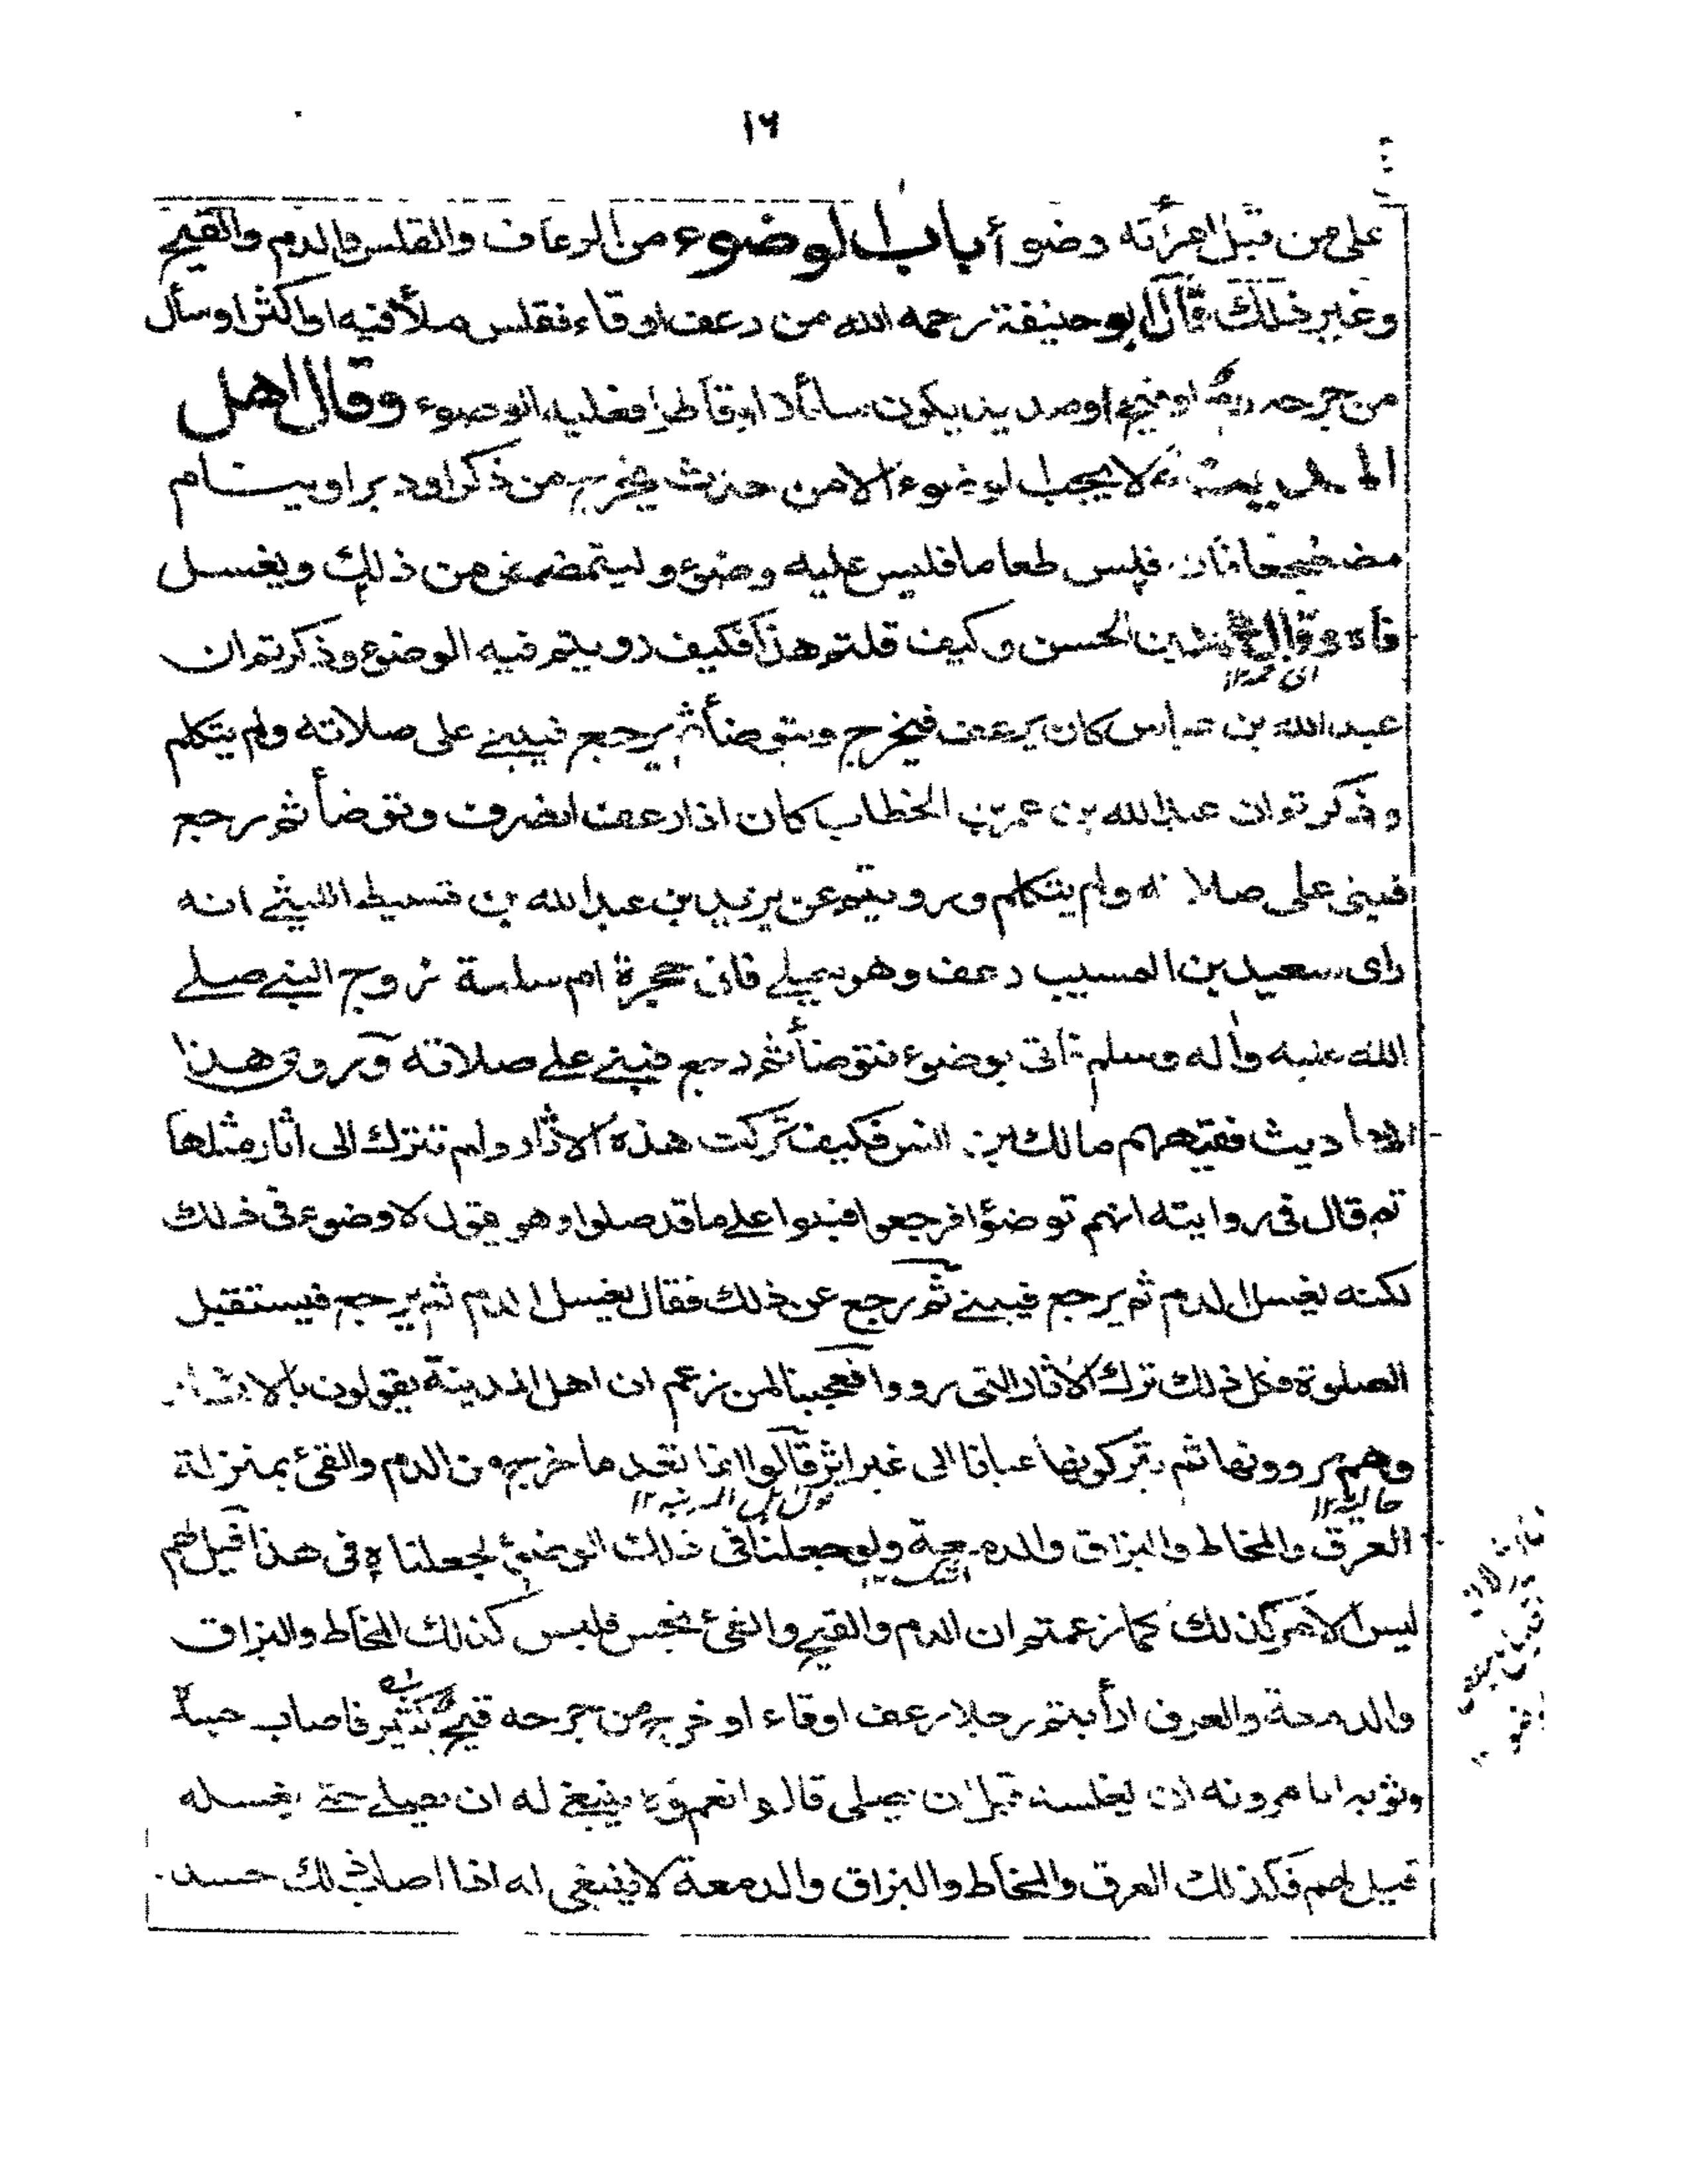 ١٦
على من قبل امرأته وضوأ باب الوضوء من الرعاف والقلس والدم والقيح
وغير ذلك قال ابو حنيفة رحمه الله من رعف او قاء فقلس ملأ فيه او اكثر او سأل
من جرحه او قيح او صديد يكون سائلا او قاطرا فعليه الوضوء وقال اهل
المدينة لا يجب الوضوء الا من حدث يخرج من ذكر او دبر او ينام
مضطجعا فان قلس طعاما فليس عليه وضوء وليتمضمض من ذلك ويغسل
فاه وقال محمد بن الحسن وكيف قلتم هذا فكيف رويتم فيه الوضوء وذكرتم ان
عبد الله بن عباس كان يرعف فيخرج ويتوضأ ثم يرجع فيبني على صلاته ولم يتكلم
وذكرتم ان عبد الله بن عمر بن الخطاب كان اذا رعف انصرف وتوضأ ثم رجع
فبنى على صلاته ولم يتكلم ورويتم عن يزيد بن عبد الله بن قسيط الليثي انه
راى سعيد بن المسيب رعف وهو يصلي فاتى حجرة ام سلمة زوج النبي صلى
الله عليه وأله وسلم فاتى بوضوء فتوضأ ثم رجع فبنى على صلاته وروى هذا
الاحاديث فقيههم مالك بن انس فكيف تركت هذه الاثار ولم تترك الى اثار مثلها
ثم قال في روايته انهم توضؤا فرجعوا فبنوا على ما قد صلوا وهو يقول لا وضوء في ذلك
لكنه يغسل الدم ثم يرجع فيبني ثم رجع عن ذلك فقال يغسل الدم ثم يرجع فيستقبل
الصلوة فكل ذلك ترك الاثار التي رووا فعجبنا لمن زعم ان اهل المدينة يقولون بالاثار
وهم يروونها ثم يتركونها عيانا الى غير اثر قالوا انما نعد ما خرج من الدم والقئ بمنزلة
العرق والمخاط والبزاق والدمعة ولو جعلنا في ذلك الوضوء لجعلناه في هذا قيل لهم
ليس الامر كذلك كما زعمتم ان الدم والقيح والقئ نجس فليس كذلك المخاط والبزاق
والدمعة والعرق ارأيتم رجلا رعف او قاء او خرج من جرحه قيح كثير فاصاب جسدا
وثوبه اتامرونه ان يغلسه قبل ان يصلى قالوا نعم ينبغي له ان يصلي حتى يغسله
قيل لهم فكذلك العرق والمخاط والبزاق والدمعة لا ينبغى له اذا اصاب ذلك جسد